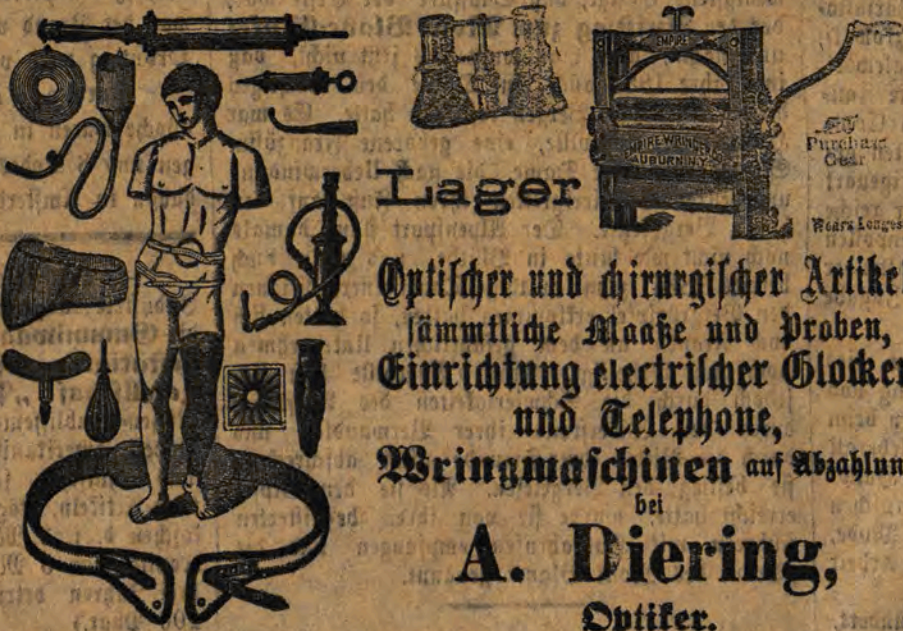 EMPIRE
EMPIRE WRINGER CO.
AUBURN N.Y.
Purchase
Gear
Wears Longest
Lager
Optiſcher und chirurgiſcher Artikel
ſämmtliche Maaße und Proben,
Einrichtung electriſcher Glocken
und Telephone,
Wringmaſchinen auf Abzahlun
bei
A. Diering,
Optiker.